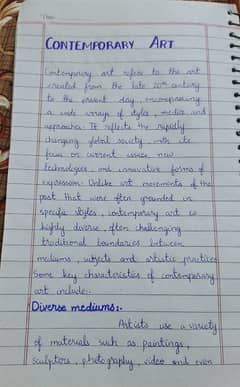 CONTEMPORARY ART
Contemporary art refers to the art
created from the late 20th century
to the present day, encompassing
a wide arrays of styles, medias and
approaches. It reflects the rapidly
changing global society, with its
focus on current issues, new
technologies, and innovative forms of
expression. Unlike art movements of the
past that were often grounded in
specific styles, contemporary art is
highly diverse, often challenging
traditional boundaries between
mediums, subjects and artistic practices
Some key characteristics of contemporary
art include:-
Diverse mediums:-
Artists use a variety
of materials such as paintings,
sculptors, photography, video and even